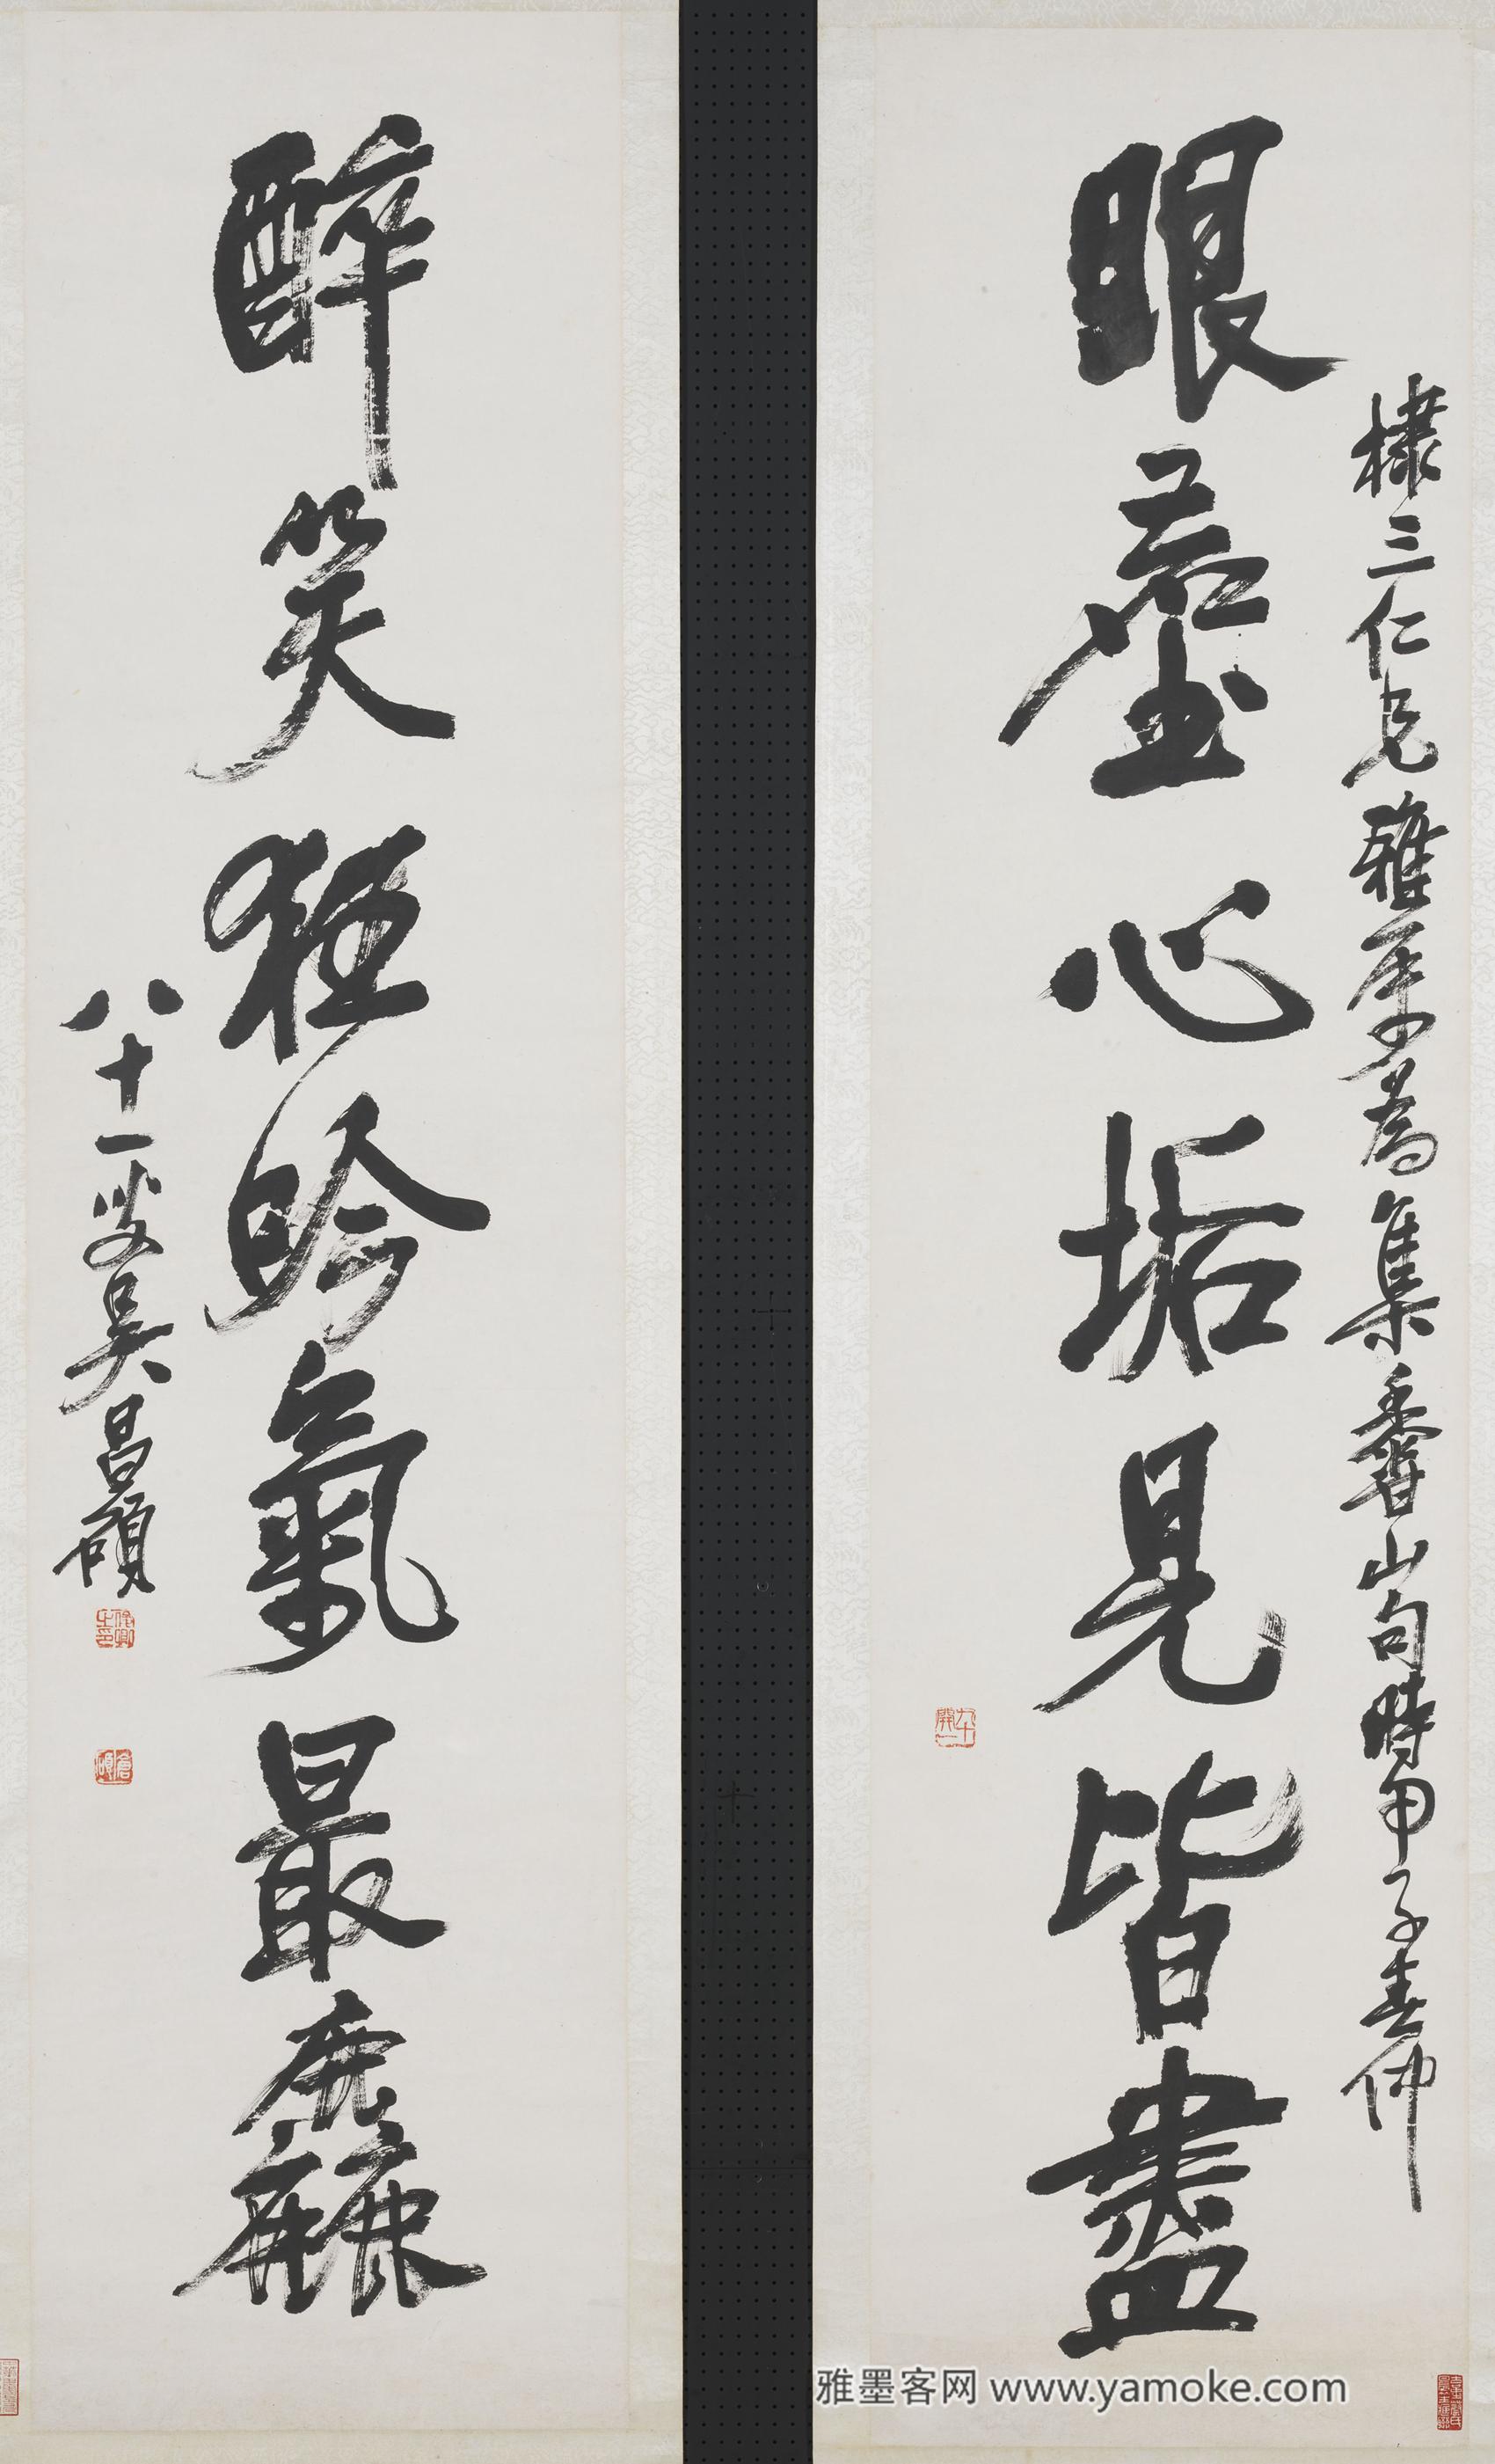 棣三仁兄雅屬為集香山句時甲子春仲
眼塵心垢見皆盡
醉笑狂吟氣最麤
八十一叟吳昌碩
雅墨客网 www.yamoke.com